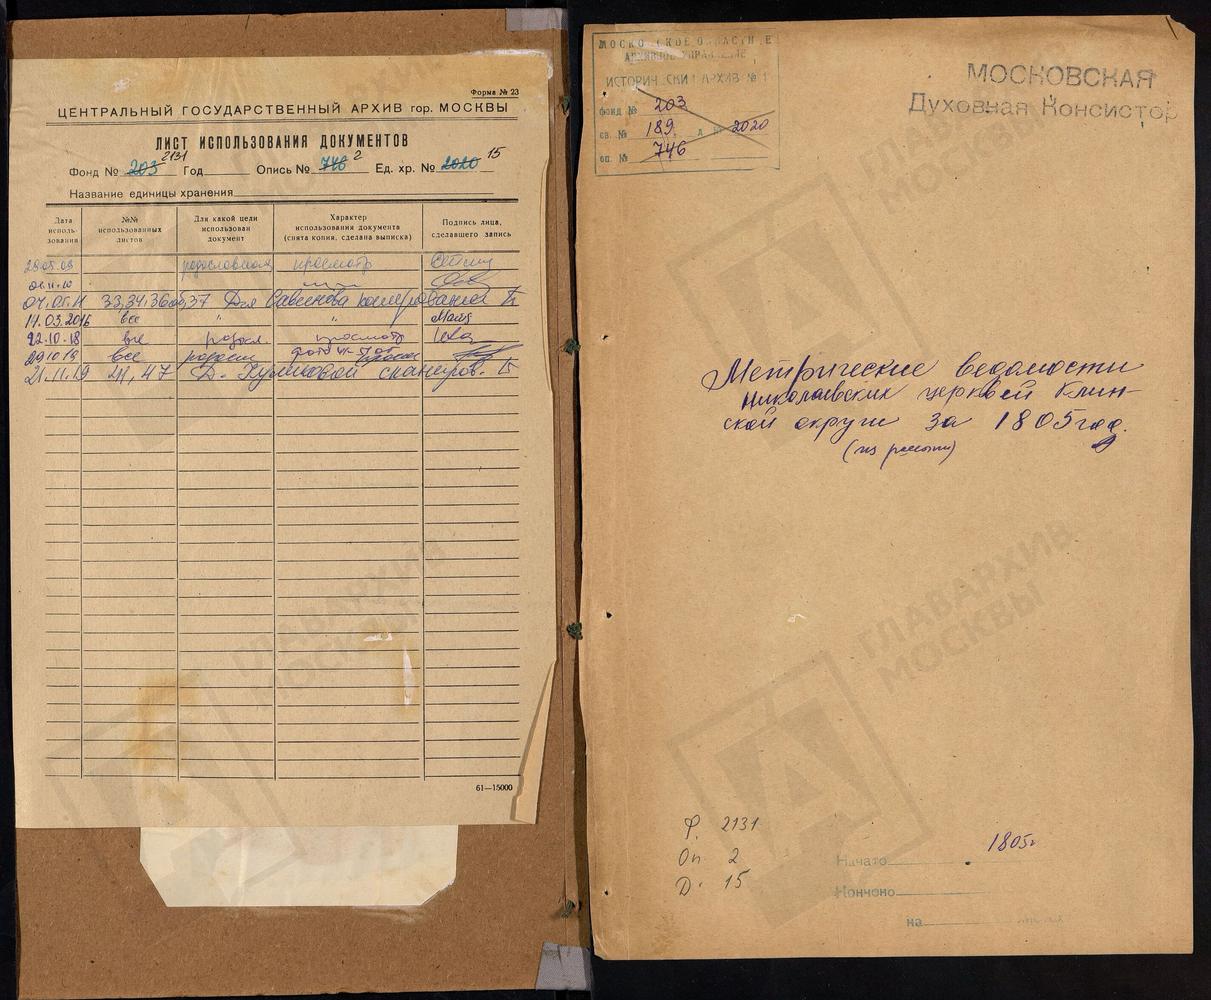 Форма № 23
ЦЕНТРАЛЬНЫЙ ГОСУДАРСТВЕННЫЙ АРХИВ гор. МОСКВЫ
ЛИСТ ИСПОЛЬЗОВАНИЯ ДОКУМЕНТОВ
Фонд № 203 2131 Год Опись № 746 2 Ед. хр. № 2020 15
Название единицы хранения
Дата использования №№ использованных листов Для какой цели использован документ Характер использования документа (снята копия, сделана выписка) Подпись лица, сделавшего запись
28.05.08 родословная просмотр
04.05.11 33,34,36об,37 Для Савинова
11.03.2016 все "  "
22.10.18 все родосл. просмотр
29.10.19 все
21.11.19 41, 47 Д. Куликовой сканиров.
61—15000
МОСКОВСКОЕ ОБЛАСТНОЕ
АРХИВНОЕ УПРАВЛЕНИЕ
ИСТОРИЧЕСКИЙ АРХИВ № 1
фонд № 203
св. № 189 д. № 2020
оп. № 746
МОСКОВСКАЯ
Духовная Консистор
Метрические ведомости
Николаевских церквей Клин-
ской округи за 1805 год.
Ф. 2131
Оп. 2
Д. 15
Начато 1805г
Кончено
на
ГЛАВАРХИВ
МОСКВЫ